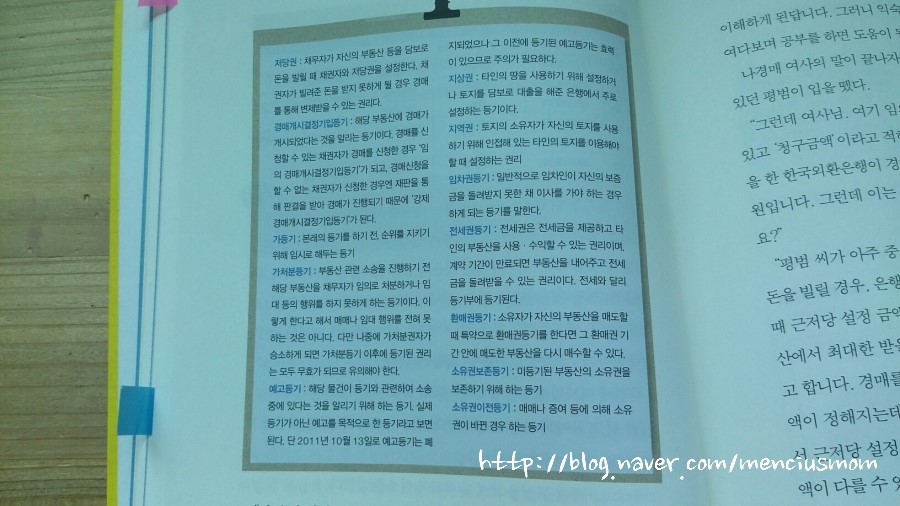 저당권 : 채무자가 자신의 부동산 등을 담보로
돈을 빌릴 때 채권자와 저당권을 설정한다. 채
권자가 빌려준 돈을 받지 못하게 될 경우 경매
를 통해 변제받을 수 있는 권리다.
경매개시결정기입등기 : 해당 부동산에 경매가
개시되었다는 것을 알리는 등기이다. 경매를 신
청할 수 있는 채권자가 경매를 신청한 경우 '임
의 경매개시결정기입등기'가 되고, 경매신청을
할 수 없는 채권자가 신청한 경우엔 재판을 통
해 판결을 받아 경매가 진행되기 때문에 '강제
경매개시결정기입등기'가 된다.
가등기 : 본래의 등기를 하기 전, 순위를 지키기
위해 임시로 해두는 등기
가처분등기 : 부동산 관련 소송을 진행하기 전
해당 부동산을 채무자가 임의로 처분하거나 임
대 등의 행위를 하지 못하게 하는 등기이다. 이
렇게 한다고 해서 매매나 임대 행위를 전혀 못
하는 것은 아니다. 다만 나중에 가처분권자가
승소하게 되면 가처분등기 이후에 등기된 권리
는 모두 무효가 되므로 유의해야 한다.
예고등기 : 해당 물건이 등기와 관련하여 소송
중에 있다는 것을 알리기 위해 하는 등기. 실제
등기가 아닌 예고를 목적으로 한 등기라고 보면
된다. 단 2011년 10월 13일로 예고등기는 폐
지되었으나 그 이전에 등기된 예고등기는 효력
이 있으므로 주의가 필요하다.
지상권 : 타인의 땅을 사용하기 위해 설정하거
나 토지를 담보로 대출을 해준 은행에서 주로
설정하는 등기이다.
지역권 : 토지의 소유자가 자신의 토지를 사용
하기 위해 인접해 있는 타인의 토지를 이용해야
할 때 설정하는 권리
임차권등기 : 일반적으로 임차인이 자신의 보증
금을 돌려받지 못한 채 이사를 가야 하는 경우
하게 되는 등기를 말한다.
전세권등기 : 전세권은 전세금을 제공하고 타
인의 부동산을 사용·수익할 수 있는 권리이며,
계약 기간이 만료되면 부동산을 내어주고 전세
금을 돌려받을 수 있는 권리이다. 전세와 달리
등기부에 등기된다.
환매권등기 : 소유자가 자신의 부동산을 매도할
때 특약으로 환매권등기를 한다면 그 환매권 기
간 안에 매도한 부동산을 다시 매수할 수 있다.
소유권보존등기 : 미등기된 부동산의 소유권을
보존하기 위해 하는 등기
소유권이전등기 : 매매나 증여 등에 의해 소유
권이 바뀐 경우 하는 등기
이해하게 된답니다. 그러니 익숙
여다보며 공부를 하면 도움이
나경매 여사의 말이 끝나자
있던 평범이 입을 뗐다.
"그런데 여사님. 여기
있고 '청구금액'이라고
을 한 한국외환은행이 경
원입니다. 그런데 이는
요?"
"평범 씨가 아주 중
돈을 빌릴 경우, 은행
때 근저당 설정 금액
산에서 최대한 받을
고 합니다. 경매를
액이 정해지는데
근저당 설정
액이 다를 수
http://blog.naver.com/menciusmom